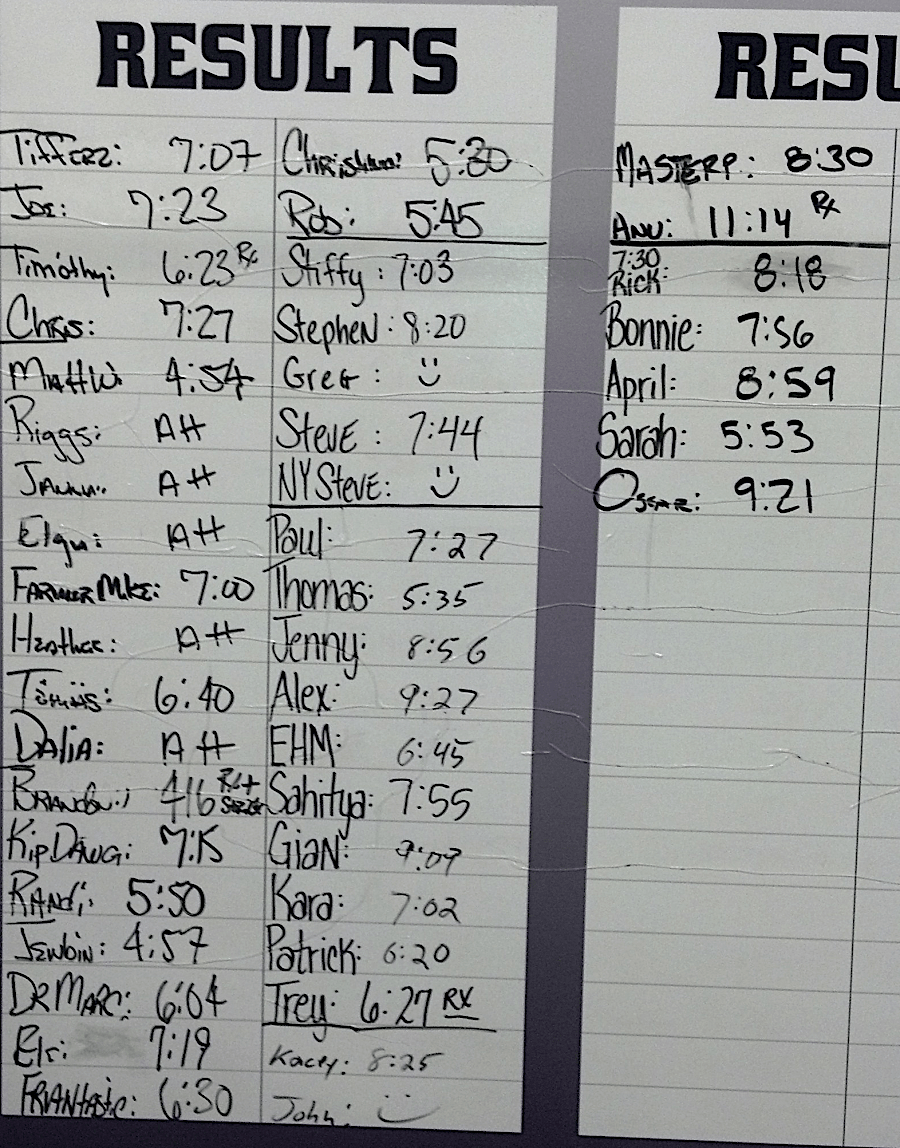 RESULTS
Tifferz: 7:07
Joe: 7:23
Timothy: 6:23 Rx
Chris: 7:27
Matt W. 4:54
Riggs: AH
AH
AH
Farmer Mike: 7:00
Heather: AH
6:40
Dalia: AH
416 Rx+
Kip Dawg: 7:15
Randi: 5:50
4:57
DeMarc: 6:04
7:19
Friantastic: 6:30
5:30
Rob: 5:45
Stiffy: 7:03
Stephen: 8:20
Greg: :)
Steve: 7:44
NY Steve: :)
Paul: 7:27
Thomas: 5:35
Jenny: 8:56
Alex: 9:27
EHM: 6:45
Sahitya: 7:55
Gian: 9:09
Kara: 7:02
Patrick: 6:20
Trey: 6:27 RX
Kacey: 8:25
John: :)
RESU
MASTERP.: 8:30
Anu: 11:14 Rx
7:30
Rick: 8:18
Bonnie: 7:56
April: 8:59
Sarah: 5:53
9:21